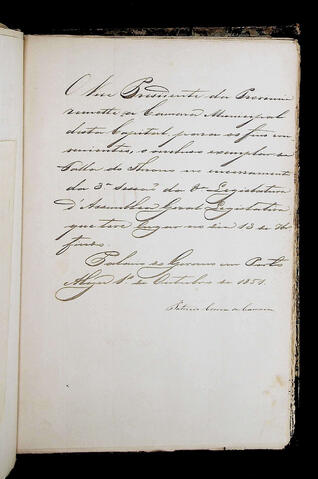 O Vice Presidente da Provincia
remette á Camara Municipal
desta Capital para os fins con
venientes, o incluso exemplar da
Falla do Throno no encerramento
da 3ª Sessão da 8ª Legislatura
d'Assemblea Geral Legislativa
que teve lugar no dia 13 de
Palacio do Governo em Porto
Alegre 1º de Outubro de 1851.
Patricio Correa da Camara